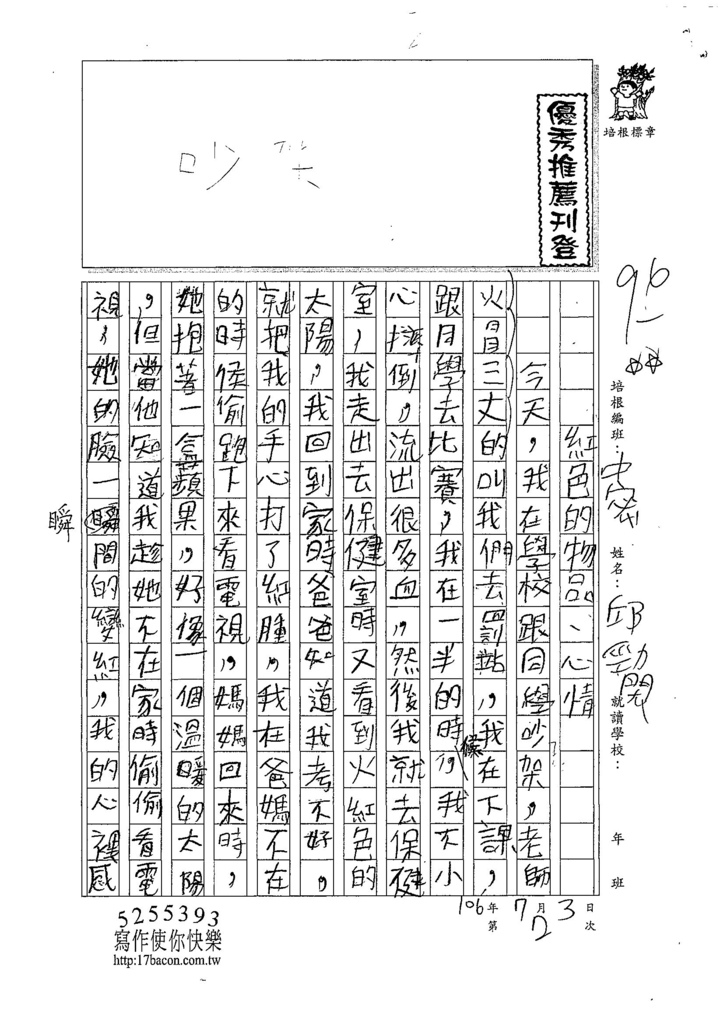 培根標章
優秀推薦刊登
吵架
96
培根編班：
姓名：邱
就讀學校：
年 班
紅色的物品、心情
今天，我在學校跟同學吵架，老師
火冒三丈的叫我們去罰站，我在下課，
跟同學去比賽，我在一半的時候，我不小
心摔倒，流出很多血，然後我就去保健
室，我走出去保健室時又看到火紅色的
太陽，我回到家時爸爸知道我考不好，
就把我的手心打了紅腫，我在爸媽不在
的時候偷跑下來看電視，媽媽回來時，
她抱著一盒蘋果，好像一個溫暖的太陽
，但當他知道我趁她不在家時偷偷看電
視，她的臉一瞬間的變紅，我的心裡感
瞬
106年7月3日
第2次
5255393
寫作使你快樂
http:17bacon.com.tw